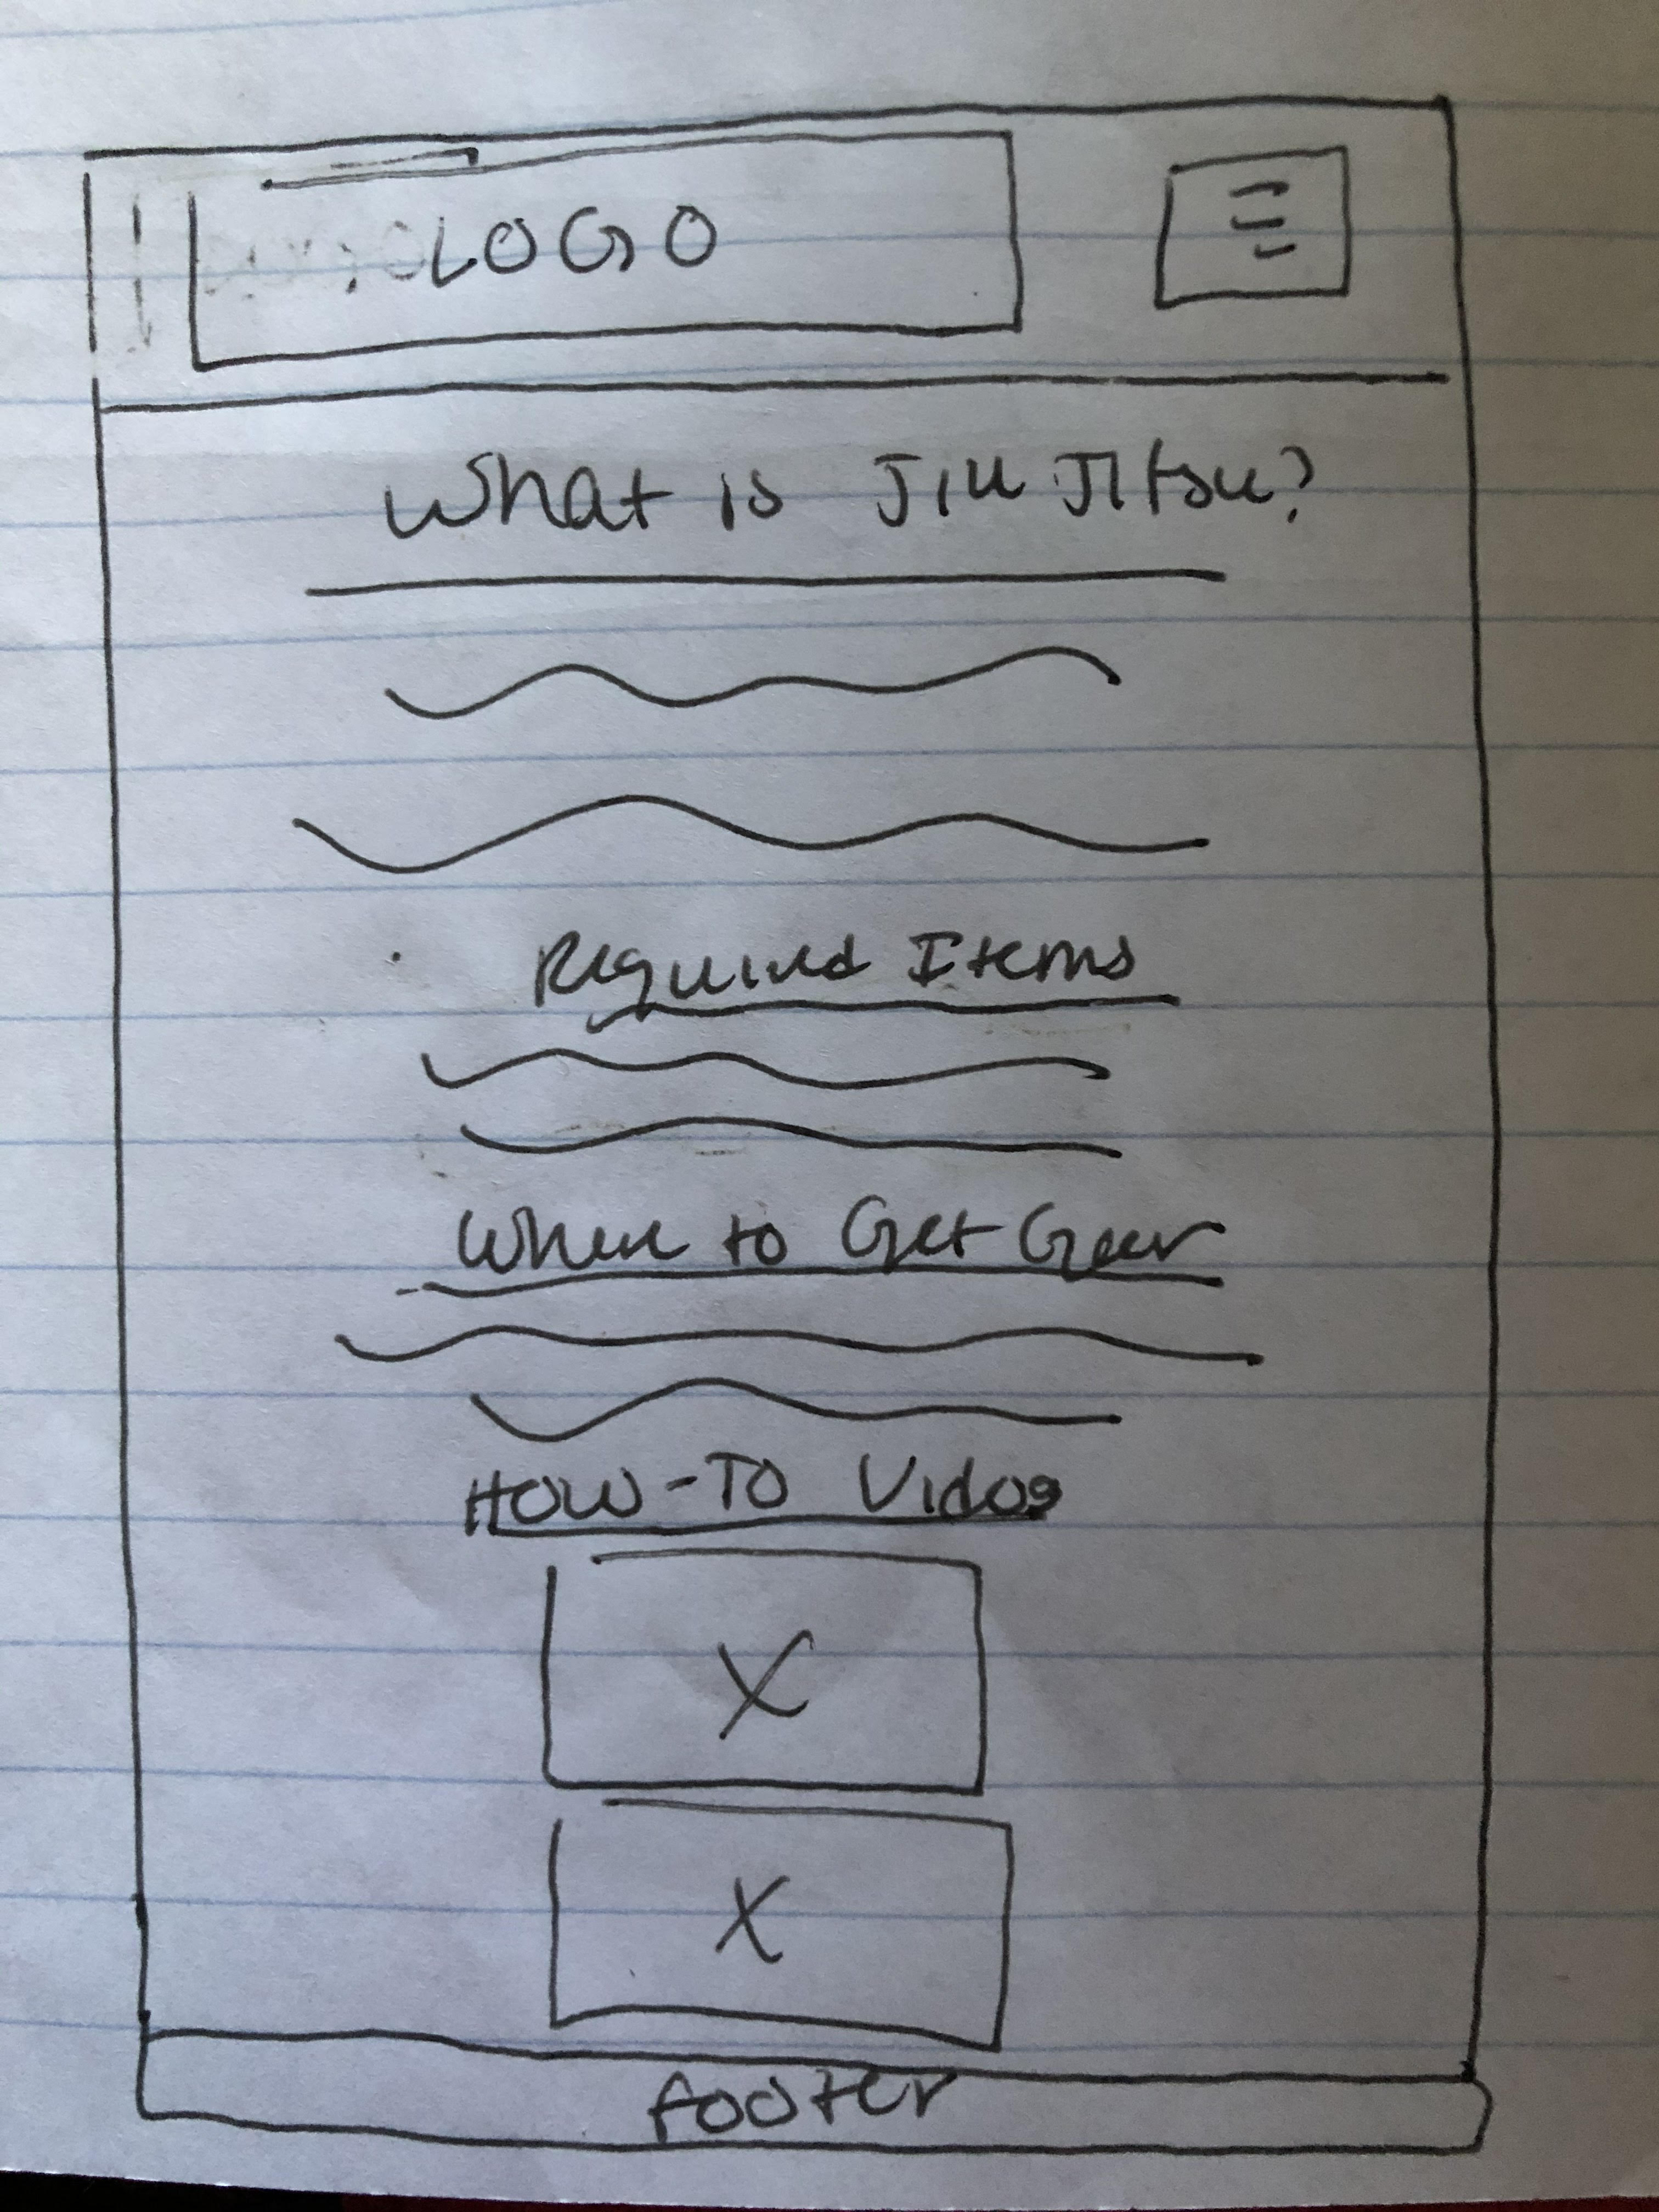 LOGO
What is Jiu Jitsu?
Required Items
Where to Get Gear
How-To Vidos
footer